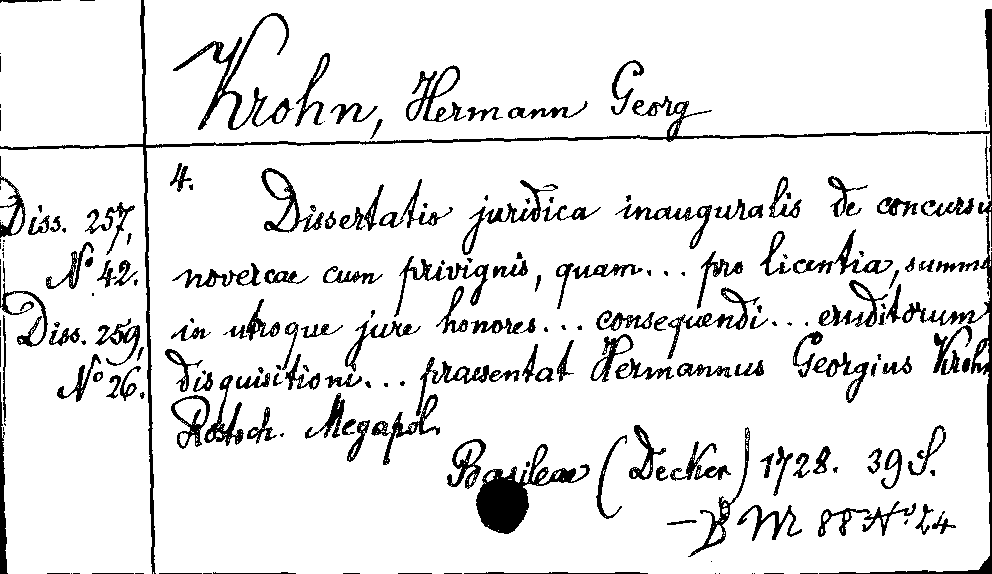 Krohn, Hermann Georg
4.
Dissertatio juridica inauguralis de concursu
Diss. 257,
No 42.
novercae cum privignis, quam... pro licentia, summo
Diss. 259,
in utroque jure honores... consequendi... eruditorum
No 26.
disquisitioni... praesentat Hermannus Georgius Krohn
Rostoch. Megapol.
Basileae (Decker) 1728. 39 S.
88 No 24